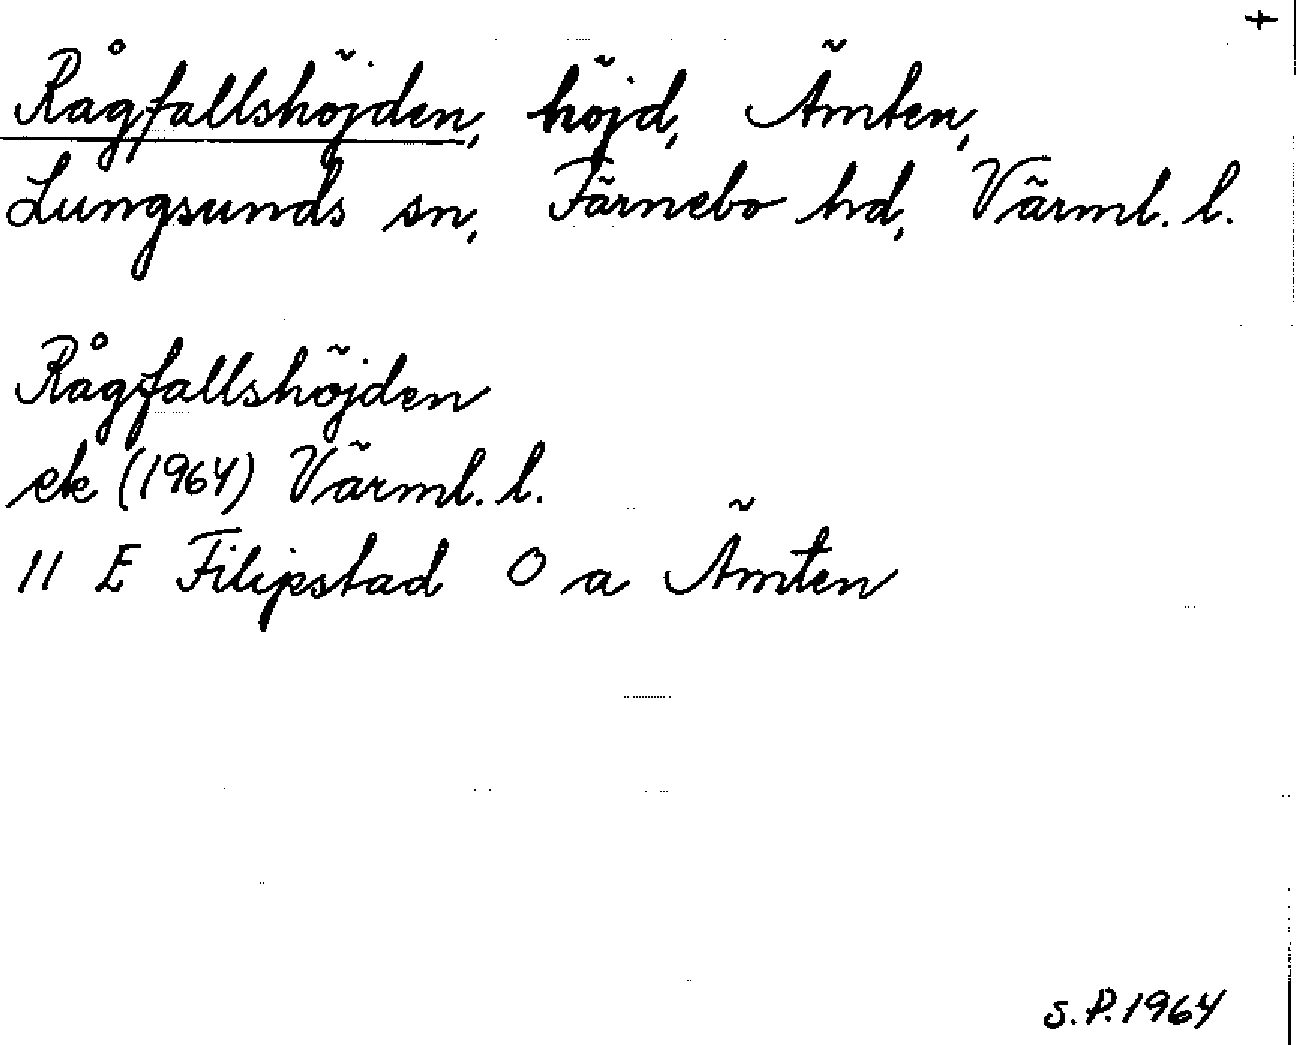 Rågfallshöjden, höjd, Ämten,
Lungsunds sn, Färnebo hd, Värml. l.
Rågfallshöjden
ek (1964) Värml. l.
11 E Filipstad O a Ämten
S.P. 1964